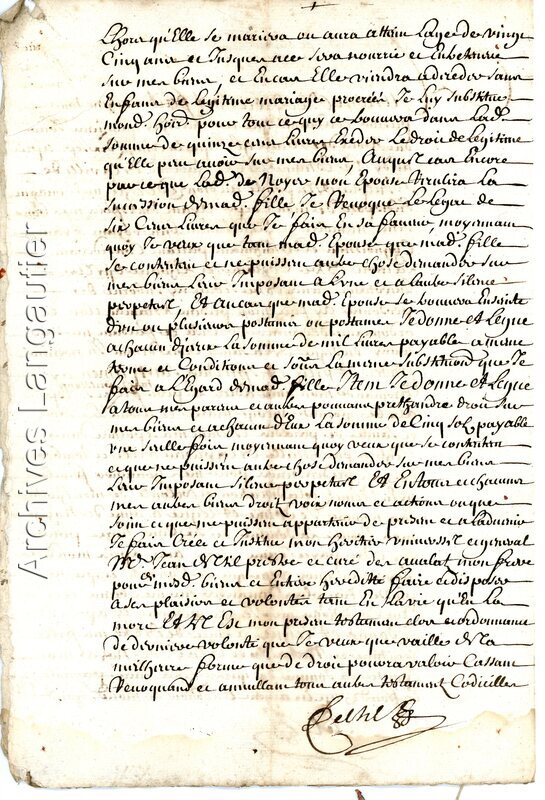 Lhors qu'Elle se mariera ou aura attain Lage de vingt
Cinq ans et Jusques a ce sera nourrie et Entretenue
sur mes biens, et En cas Elle viendra a deceder sans
Enfans de Legitime mariage procréés Je Luy substitue
mond. Herit. pour tout ce quy ce trouvera dans Lad.
somme de quinze cens Livres Excéder Le droit de Legitime
qu'Elle peut avoir sur mes biens, Auquel cas Encore
parce que Lad. de Noyer mon Epouse Reculira La
succession de mad. fille Je Revoque Le Legat de
six Cens Livres que Je fais En sa faveur, moyennant
quoy Je veux que tant mad. Epouse que mad. fille
se contentent et ne puissent autre chose demander sur
mes biens Leur Imposant a L'une et a L'autre silence
perpetuel, Et au cas que mad. Epouse se trouvera Enceinte
d'un ou plusieurs postumes ou postumes Je donne et Legue
a chacun d'iceux La somme de mil Livres payable a meme
terme et Conditions et sous La meme substitution que Je
fais a L'Egard de mad. fille Item Je donne et Legue
a tous mes parens et autres pouvant prethandre droit sur
mes biens et a chacun d'Eux La somme de Cinq sols payable
une seulle fois moyennant quoy veux que se contentent
et que ne puissent autre chose demander sur mes biens
Leur Imposant silence perpetuel Et En tous et chacuns
mes autres biens droitz voix noms et actions ou que
soint et que me puissent appartenir de present et a Ladvenir
Je fais Créé et Institue mon heritier universel et general
Mr. Jean Delzil prestre et curé de avalat mon frere
pour de mesd. biens et Entiere heredité faire et disposer
a ses plaisirs et volontés tant En La vie qu'En La
mort Et tel Est mon present testament clos et ordonnance
de derniere volonté que Je veux que vaille de La
meilheure forme que de droit pourra valoir Cassant
Revoquand et annullant tous autres testament Codicilles
Delzil
Archives Langautier